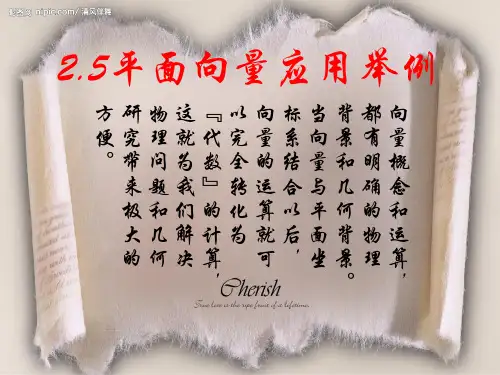 昵图网 nipic.com/清风佳舞
2.5平面向量应用举例
向量概念和运算，
都有明确的物理
背景和几何背景。
当向量与平面坐
标系结合以后，
向量的运算就可
以完全转化为
『代数』的计算，
这就为我们解决
物理问题和几何
研究带来极大的
方便。
Cherish
True love is the ripe fruit of a lifetime.